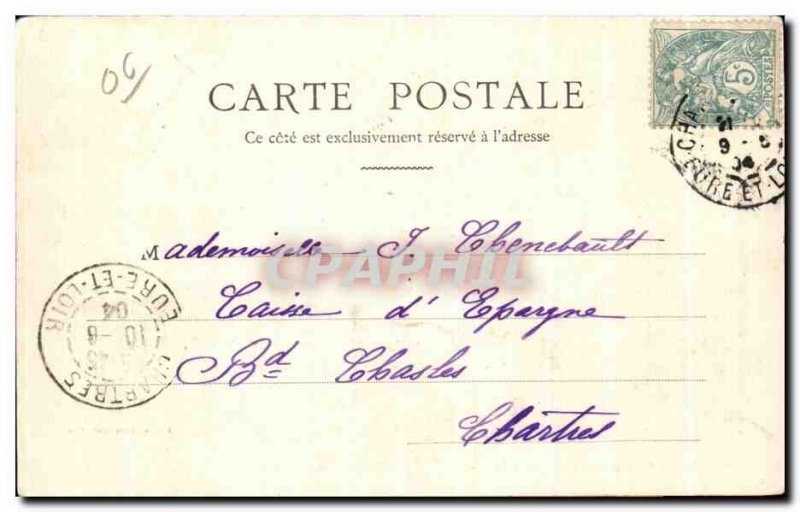 06
CARTE POSTALE
Ce côté est exclusivement réservé à l'adresse
5c
POSTES
9-6
04
EURE-ET-LOIR
Mademoiselle J. Chenebault
CPAPHIL
Caisse d'Epargne
Bd Chasles
Chartres
CHARTRES
10-6
04
EURE-ET-LOIR